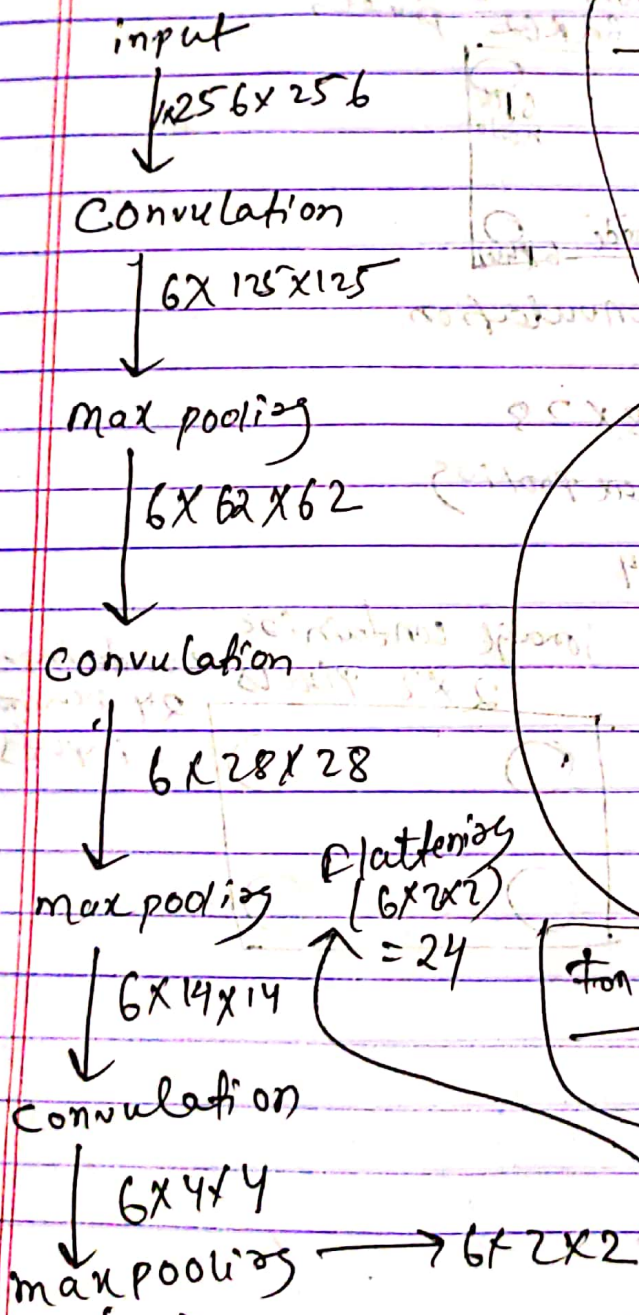 input
1x256x256
Convulation
6x125x125
max pooling
6x62x62
Convulation
6x28x28
max pooling
6x14x14
Convulation
6x4x4
max pooling → 6x2x2
Flattening
(6x2x2)
= 24